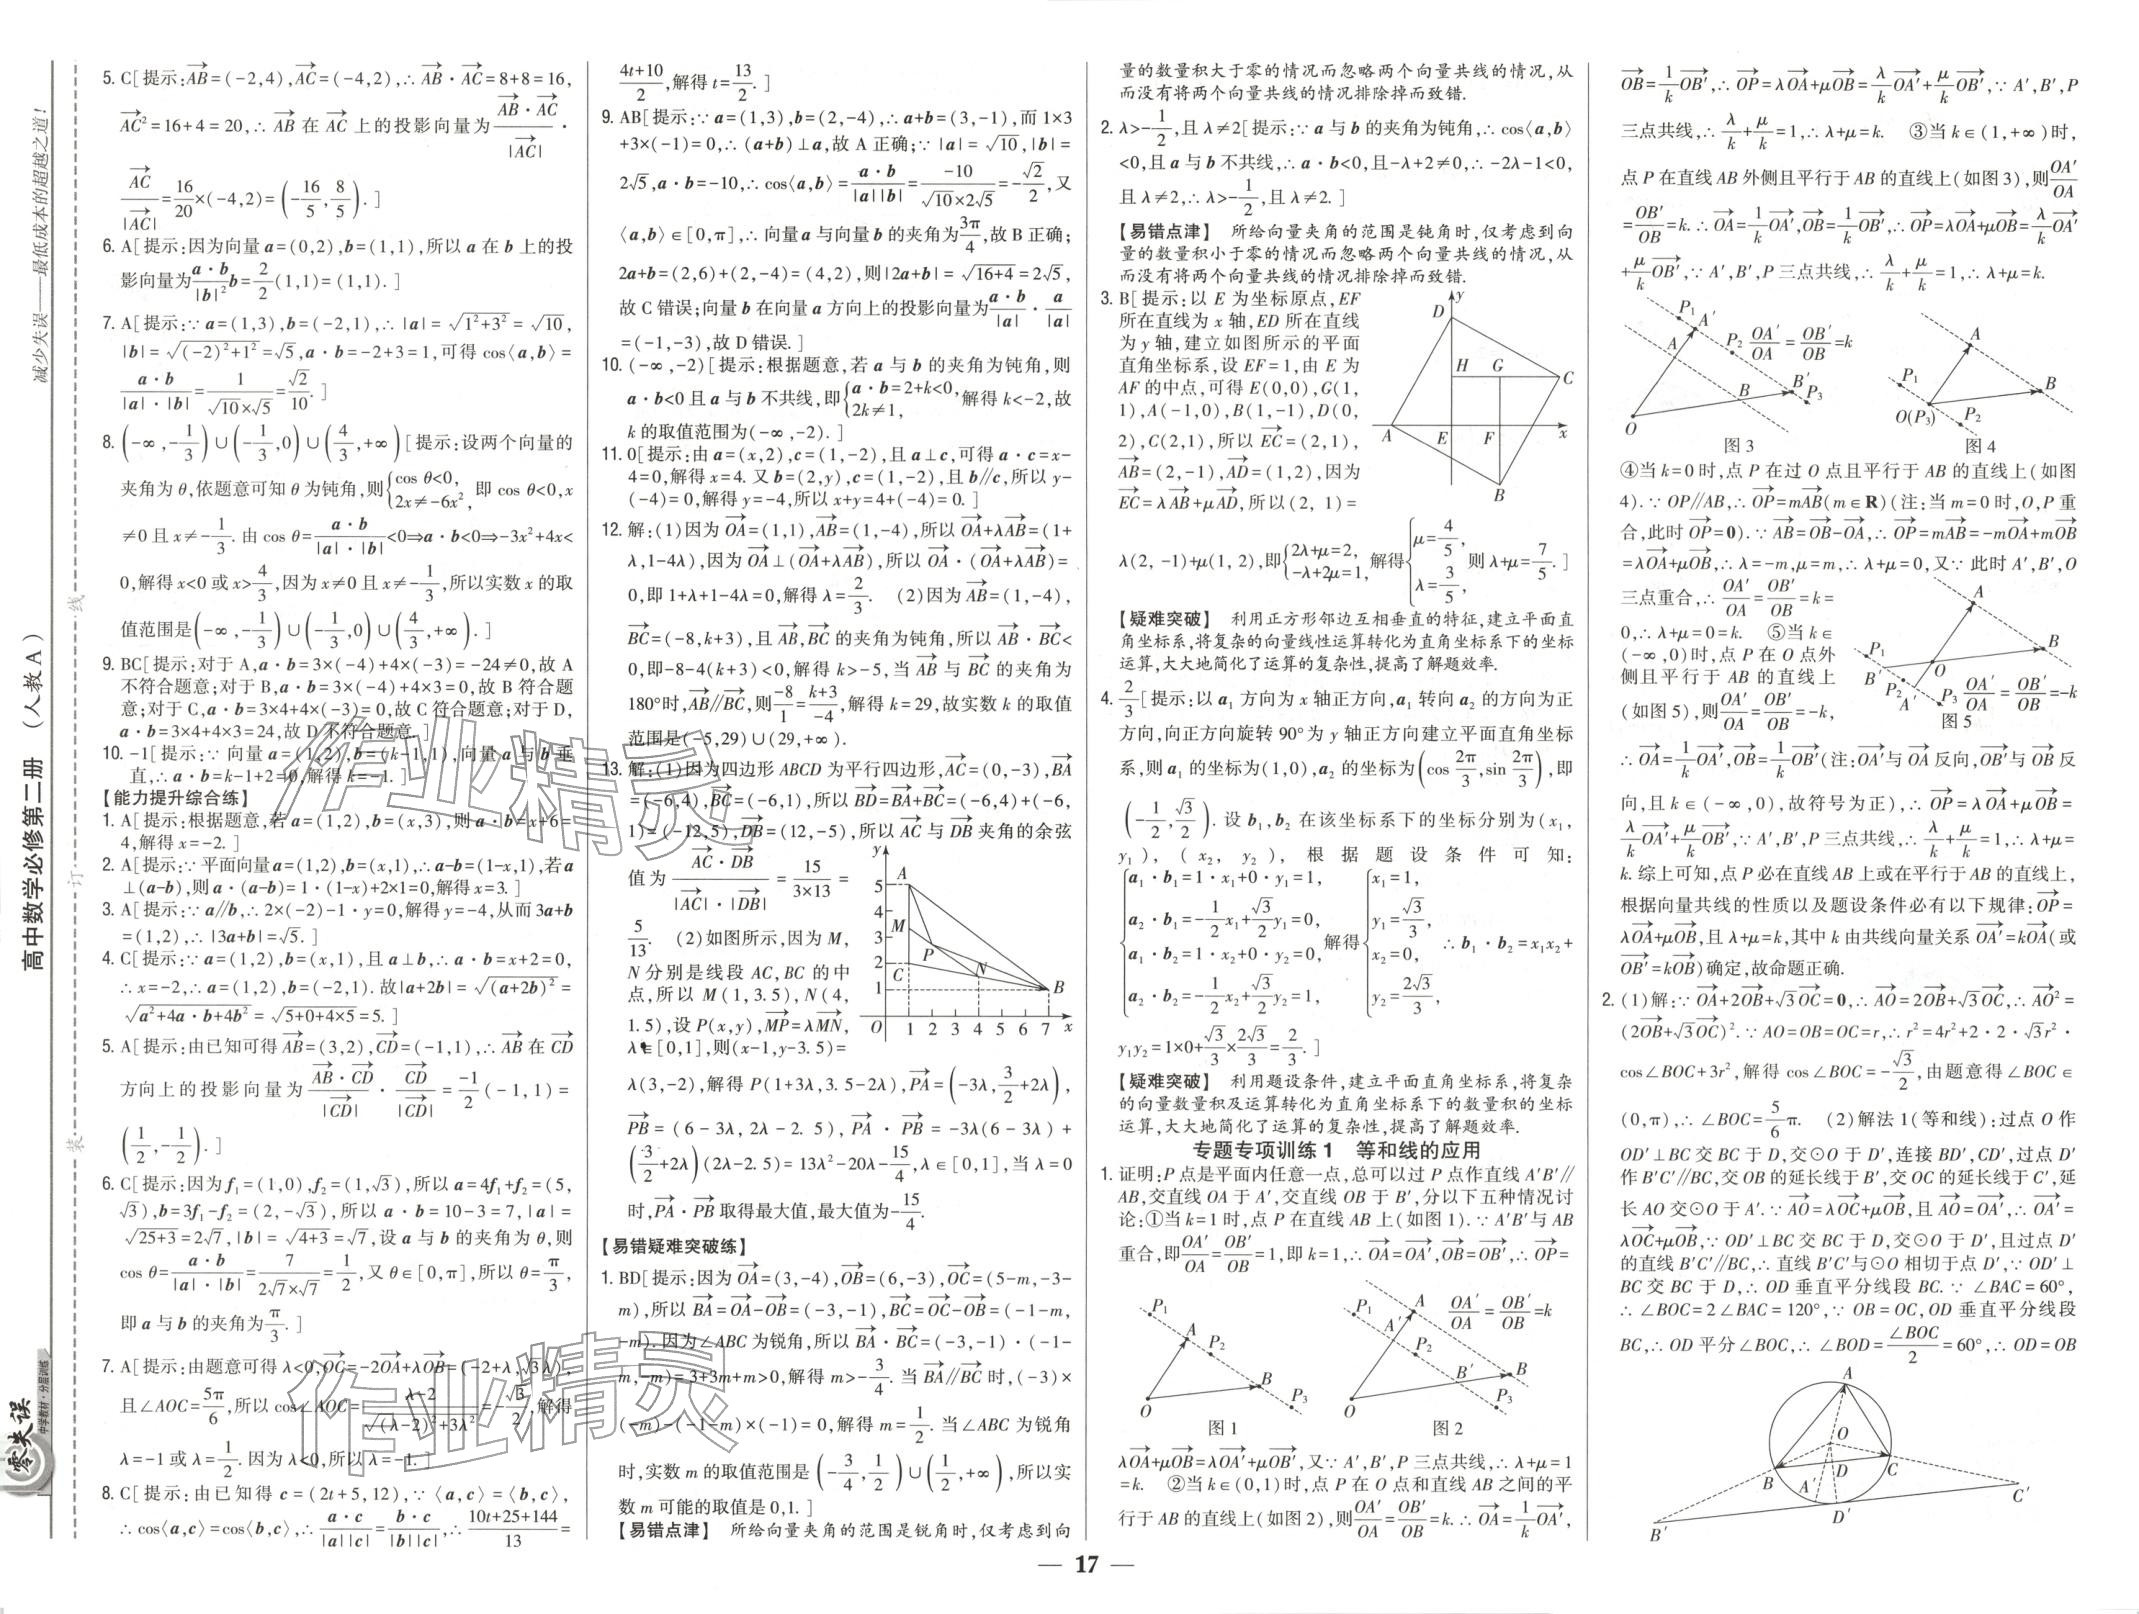 减少失误——最低成本的超越之道！
高中数学必修第二册 （人教A）
零失误
中学教材·分层训练
装 订 线
5. C[提示:AB=(-2,4),AC=(-4,2),∴AB·AC=8+8=16,
AC²=16+4=20,∴AB在AC上的投影向量为(AB·AC)/|AC|·
AC/|AC|=16/20×(-4,2)=(-16/5,8/5).]
6. A[提示:因为向量a=(0,2),b=(1,1),所以a在b上的投
影向量为(a·b)/|b|² b=2/2(1,1)=(1,1).]
7. A[提示:∵a=(1,3),b=(-2,1),∴|a|=√(1²+3²)=√10,
|b|=√((-2)²+1²)=√5,a·b=-2+3=1,可得cos⟨a,b⟩=
(a·b)/(|a|·|b|)=1/(√10×√5)=√2/10.]
8. (-∞,-1/3)∪(-1/3,0)∪(4/3,+∞)[提示:设两个向量的
夹角为θ,依题意可知θ为钝角,则{cos θ<0, 2x≠-6x², 即cos θ<0,x
≠0且x≠-1/3.由cos θ=(a·b)/(|a|·|b|)<0⇒a·b<0⇒-3x²+4x<
0,解得x<0或x>4/3,因为x≠0且x≠-1/3,所以实数x的取
值范围是(-∞,-1/3)∪(-1/3,0)∪(4/3,+∞).]
9. BC[提示:对于A,a·b=3×(-4)+4×(-3)=-24≠0,故A
不符合题意;对于B,a·b=3×(-4)+4×3=0,故B符合题
意;对于C,a·b=3×4+4×(-3)=0,故C符合题意;对于D,
a·b=3×4+4×3=24,故D不符合题意.]
10. -1[提示:∵向量a=(1,2),b=(k-1,1),向量a与b垂
直,∴a·b=k-1+2=0,解得k=-1.]
【能力提升综合练】
1. A[提示:根据题意,若a=(1,2),b=(x,3),则a·b=x+6=
4,解得x=-2.]
2. A[提示:∵平面向量a=(1,2),b=(x,1),∴a-b=(1-x,1),若a
⊥(a-b),则a·(a-b)=1·(1-x)+2×1=0,解得x=3.]
3. A[提示:∵a∥b,∴2×(-2)-1·y=0,解得y=-4,从而3a+b
=(1,2),∴|3a+b|=√5.]
4. C[提示:∵a=(1,2),b=(x,1),且a⊥b,∴a·b=x+2=0,
∴x=-2,∴a=(1,2),b=(-2,1).故|a+2b|=√((a+2b)²)=
√(a²+4a·b+4b²)=√(5+0+4×5)=5.]
5. A[提示:由已知可得AB=(3,2),CD=(-1,1),∴AB在CD
方向上的投影向量为(AB·CD)/|CD|·CD/|CD|=-1/2(-1,1)=
(1/2,-1/2).]
6. C[提示:因为f₁=(1,0),f₂=(1,√3),所以a=4f₁+f₂=(5,
√3),b=3f₁-f₂=(2,-√3),所以a·b=10-3=7,|a|=
√(25+3)=2√7,|b|=√(4+3)=√7,设a与b的夹角为θ,则
cos θ=(a·b)/(|a|·|b|)=7/(2√7×√7)=1/2,又θ∈[0,π],所以θ=π/3,
即a与b的夹角为π/3.]
7. A[提示:由题意可得λ<0,OC=-2OA+λOB=(-2+λ,√3λ),
且∠AOC=5π/6,所以cos∠AOC=(λ-2)/√((λ-2)²+3λ²)=-√3/2,解得
λ=-1或λ=1/2.因为λ<0,所以λ=-1.]
8. C[提示:由已知得c=(2t+5,12),∵⟨a,c⟩=⟨b,c⟩,
∴cos⟨a,c⟩=cos⟨b,c⟩,∴(a·c)/(|a||c|)=(b·c)/(|b||c|),∴(10t+25+144)/13=
(4t+10)/2,解得t=13/2.]
9. AB[提示:∵a=(1,3),b=(2,-4),∴a+b=(3,-1),而1×3
+3×(-1)=0,∴(a+b)⊥a,故A正确;∵|a|=√10,|b|=
2√5,a·b=-10,∴cos⟨a,b⟩=(a·b)/(|a||b|)=-10/(√10×2√5)=-√2/2,又
⟨a,b⟩∈[0,π],∴向量a与向量b的夹角为3π/4,故B正确;
2a+b=(2,6)+(2,-4)=(4,2),则|2a+b|=√(16+4)=2√5,
故C错误;向量b在向量a方向上的投影向量为(a·b)/|a|·a/|a|
=(-1,-3),故D错误.]
10. (-∞,-2)[提示:根据题意,若a与b的夹角为钝角,则
a·b<0且a与b不共线,即{a·b=2+k<0, 2k≠1, 解得k<-2,故
k的取值范围为(-∞,-2).]
11. 0[提示:由a=(x,2),c=(1,-2),且a⊥c,可得a·c=x-
4=0,解得x=4.又b=(2,y),c=(1,-2),且b∥c,所以y-
(-4)=0,解得y=-4,所以x+y=4+(-4)=0.]
12. 解:(1)因为OA=(1,1),AB=(1,-4),所以OA+λAB=(1+
λ,1-4λ),因为OA⊥(OA+λAB),所以OA·(OA+λAB)=
0,即1+λ+1-4λ=0,解得λ=2/3. (2)因为AB=(1,-4),
BC=(-8,k+3),且AB,BC的夹角为钝角,所以AB·BC<
0,即-8-4(k+3)<0,解得k>-5,当AB与BC的夹角为
180°时,AB∥BC,则-8/1=(k+3)/-4,解得k=29,故实数k的取值
范围是(-5,29)∪(29,+∞).
13. 解:(1)因为四边形ABCD为平行四边形,AC=(0,-3),BA
=(-6,4),BC=(-6,1),所以BD=BA+BC=(-6,4)+(-6,
1)=(-12,5),DB=(12,-5),所以AC与DB夹角的余弦
值为(AC·DB)/(|AC|·|DB|)=15/(3×13)=
5/13. (2)如图所示,因为M,
N分别是线段AC,BC的中
点,所以M(1,3.5),N(4,
1.5),设P(x,y),MP=λMN,
λ∈[0,1],则(x-1,y-3.5)=
y 5 4 3 2 1 A M P C N B O 1 2 3 4 5 6 7 x
λ(3,-2),解得P(1+3λ,3.5-2λ),PA=(-3λ,3/2+2λ),
PB=(6-3λ,2λ-2.5),PA·PB=-3λ(6-3λ)+
(3/2+2λ)(2λ-2.5)=13λ²-20λ-15/4,λ∈[0,1],当λ=0
时,PA·PB取得最大值,最大值为-15/4.
【易错疑难突破练】
1. BD[提示:因为OA=(3,-4),OB=(6,-3),OC=(5-m,-3-
m),所以BA=OA-OB=(-3,-1),BC=OC-OB=(-1-m,
-m).因为∠ABC为锐角,所以BA·BC=(-3,-1)·(-1-
m,-m)=3+3m+m>0,解得m>-3/4.当BA∥BC时,(-3)×
(-m)-(-1-m)×(-1)=0,解得m=1/2.当∠ABC为锐角
时,实数m的取值范围是(-3/4,1/2)∪(1/2,+∞),所以实
数m可能的取值是0,1.]
【易错点津】 所给向量夹角的范围是锐角时,仅考虑到向
量的数量积大于零的情况而忽略两个向量共线的情况,从
而没有将两个向量共线的情况排除掉而致错.
2. λ>-1/2,且λ≠2[提示:∵a与b的夹角为钝角,∴cos⟨a,b⟩
<0,且a与b不共线,∴a·b<0,且-λ+2≠0,∴-2λ-1<0,
且λ≠2,∴λ>-1/2,且λ≠2.]
【易错点津】 所给向量夹角的范围是钝角时,仅考虑到向
量的数量积小于零的情况而忽略两个向量共线的情况,从
而没有将两个向量共线的情况排除掉而致错.
3. B[提示:以E为坐标原点,EF
所在直线为x轴,ED所在直线
为y轴,建立如图所示的平面
直角坐标系,设EF=1,由E为
AF的中点,可得E(0,0),G(1,
1),A(-1,0),B(1,-1),D(0,
2),C(2,1),所以EC=(2,1),
AB=(2,-1),AD=(1,2),因为
EC=λAB+μAD,所以(2,1)=
D y H G C A E F x B
λ(2,-1)+μ(1,2),即{2λ+μ=2, -λ+2μ=1, 解得{μ=4/5, λ=3/5, 则λ+μ=7/5.]
【疑难突破】 利用正方形邻边互相垂直的特征,建立平面直
角坐标系,将复杂的向量线性运算转化为直角坐标系下的坐标
运算,大大地简化了运算的复杂性,提高了解题效率.
4. 2/3[提示:以a₁方向为x轴正方向,a₁转向a₂的方向为正
方向,向正方向旋转90°为y轴正方向建立平面直角坐标
系,则a₁的坐标为(1,0),a₂的坐标为(cos 2π/3,sin 2π/3),即
(-1/2,√3/2).设b₁,b₂在该坐标系下的坐标分别为(x₁,
y₁),(x₂,y₂),根据题设条件可知:
{a₁·b₁=1·x₁+0·y₁=1, a₂·b₁=-1/2x₁+√3/2y₁=0, a₁·b₂=1·x₂+0·y₂=0, a₂·b₂=-1/2x₂+√3/2y₂=1, 解得{x₁=1, y₁=√3/3, x₂=0, y₂=2√3/3, ∴b₁·b₂=x₁x₂+
y₁y₂=1×0+√3/3×2√3/3=2/3.]
【疑难突破】 利用题设条件,建立平面直角坐标系,将复杂
的向量数量积及运算转化为直角坐标系下的数量积的坐标
运算,大大地简化了运算的复杂性,提高了解题效率.
专题专项训练1 等和线的应用
1. 证明:P点是平面内任意一点,总可以过P点作直线A′B′∥
AB,交直线OA于A′,交直线OB于B′,分以下五种情况讨
论:①当k=1时,点P在直线AB上(如图1).∵A′B′与AB
重合,即OA′/OA=OB′/OB=1,即k=1,∴OA=OA′,OB=OB′,∴OP=
P₁ A P₂ B P₃ O 图1
P₁ A A′ P₂ B′ B P₃ O OA′/OA=OB′/OB=k 图2
λOA+μOB=λOA′+μOB′,又∵A′,B′,P三点共线,∴λ+μ=1
=k. ②当k∈(0,1)时,点P在O点和直线AB之间的平
行于AB的直线上(如图2),则OA′/OA=OB′/OB=k.∴OA=1/kOA′,
OB=1/kOB′,∴OP=λOA+μOB=λ/kOA′+μ/kOB′,∵A′,B′,P
三点共线,∴λ/k+μ/k=1,∴λ+μ=k. ③当k∈(1,+∞)时,
点P在直线AB外侧且平行于AB的直线上(如图3),则OA′/OA
=OB′/OB=k.∴OA=1/kOA′,OB=1/kOB′,∴OP=λOA+μOB=λ/kOA′
+μ/kOB′,∵A′,B′,P三点共线,∴λ/k+μ/k=1,∴λ+μ=k.
P₁ A′ A P₂ OA′/OA=OB′/OB=k B B′ P₃ O 图3
A P₁ B O(P₃) P₂ 图4
④当k=0时,点P在过O点且平行于AB的直线上(如图
4).∵OP∥AB,∴OP=mAB(m∈R)(注:当m=0时,O,P重
合,此时OP=0).∵AB=OB-OA,∴OP=mAB=-mOA+mOB
=λOA+μOB,∴λ=-m,μ=m,∴λ+μ=0,又∵此时A′,B′,O
三点重合,∴OA′/OA=OB′/OB=k=
0,∴λ+μ=0=k. ⑤当k∈
(-∞,0)时,点P在O点外
侧且平行于AB的直线上
(如图5),则OA′/OA=OB′/OB=-k,
A P₁ B O B′ P₂ A′ P₃ OA′/OA=OB′/OB=-k 图5
∴OA=1/kOA′,OB=1/kOB′(注:OA′与OA反向,OB′与OB反
向,且k∈(-∞,0),故符号为正),∴OP=λOA+μOB=
λ/kOA′+μ/kOB′,∵A′,B′,P三点共线,∴λ/k+μ/k=1,∴λ+μ=
k.综上可知,点P必在直线AB上或在平行于AB的直线上,
根据向量共线的性质以及题设条件必有以下规律:OP=
λOA+μOB,且λ+μ=k,其中k由共线向量关系OA′=kOA(或
OB′=kOB)确定,故命题正确.
2. (1)解:∵OA+2OB+√3OC=0,∴AO=2OB+√3OC,∴AO²=
(2OB+√3OC)².∵AO=OB=OC=r,∴r²=4r²+2·2·√3r²·
cos∠BOC+3r²,解得cos∠BOC=-√3/2,由题意得∠BOC∈
(0,π),∴∠BOC=5/6π. (2)解法1(等和线):过点O作
OD′⊥BC交BC于D,交⊙O于D′,连接BD′,CD′,过点D′
作B′C′∥BC,交OB的延长线于B′,交OC的延长线于C′,延
长AO交⊙O于A′.∵AO=λOC+μOB,且AO=OA′,∴OA′=
λOC+μOB,∵OD′⊥BC交BC于D,交⊙O于D′,且过点D′
的直线B′C′∥BC,∴直线B′C′与⊙O相切于点D′,∵OD′⊥
BC交BC于D,∴OD垂直平分线段BC.∵∠BAC=60°,
∴∠BOC=2∠BAC=120°,∵OB=OC,OD垂直平分线段
BC,∴OD平分∠BOC,∴∠BOD=∠BOC/2=60°,∴OD=OB
A O B D C A′ C′ D′ B′
作业精灵
作业精灵
— 17 —